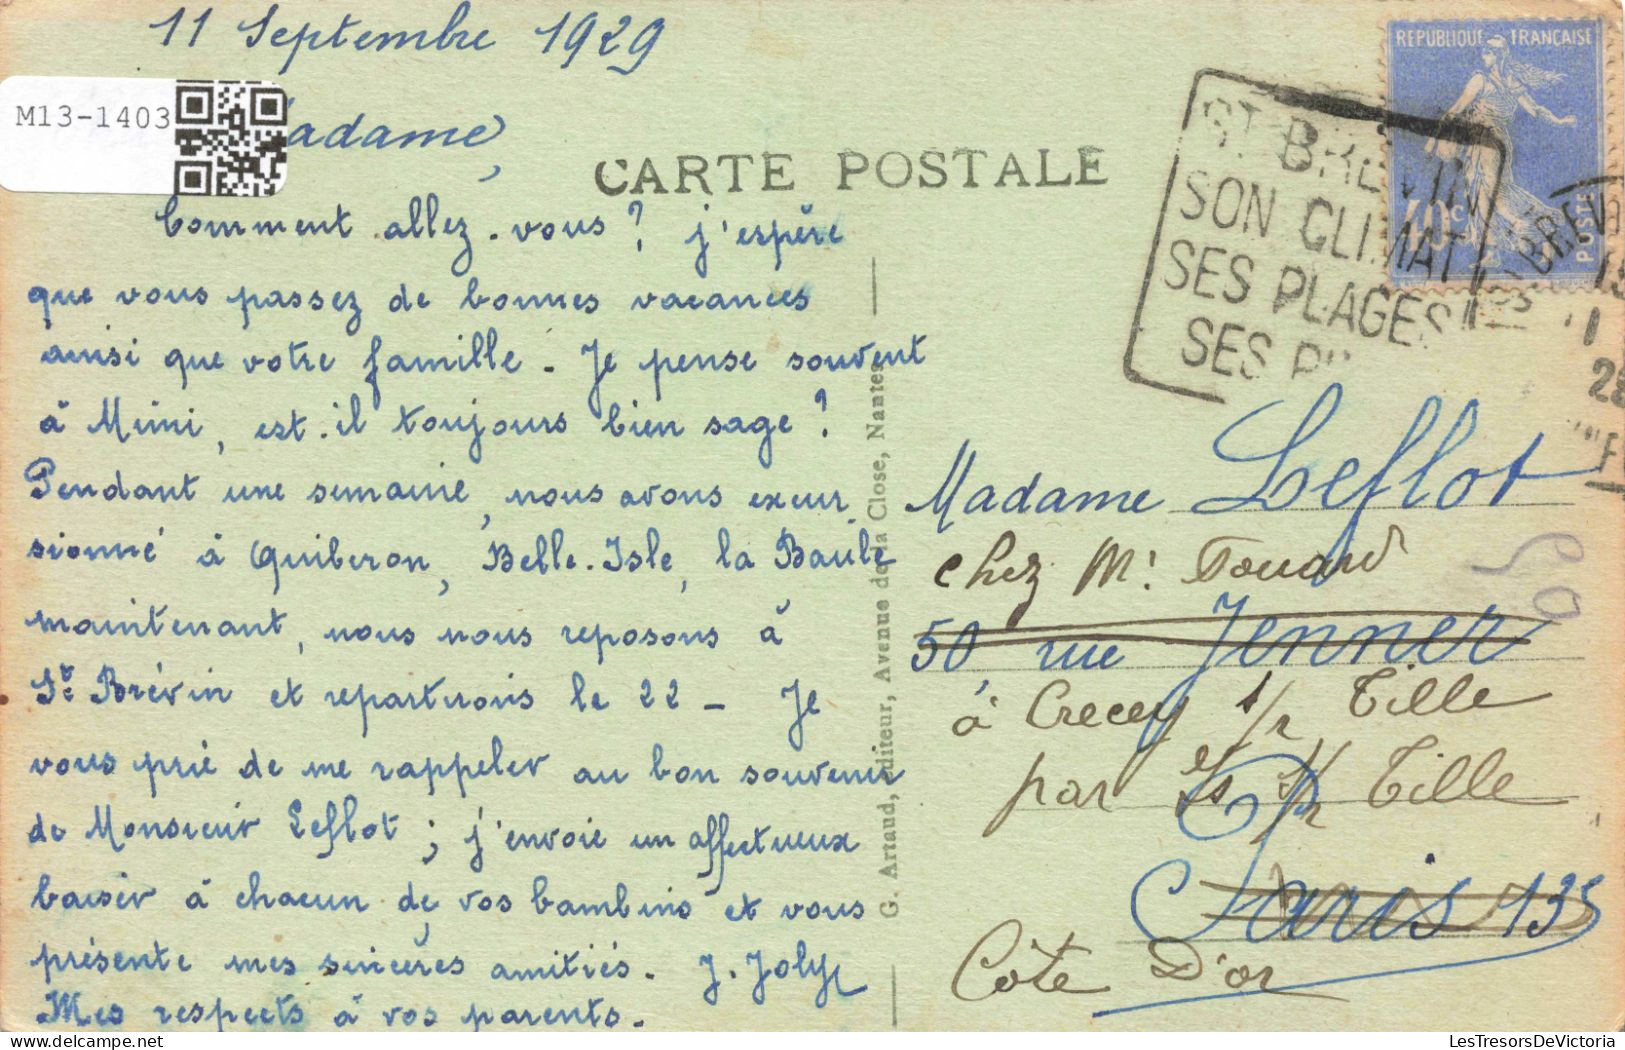 11 Septembre 1929
M13-1403
adame,
CARTE POSTALE
REPUBLIQUE FRANÇAISE
40c
POSTES
ST BREVIN
SON CLIMAT
SES PLAGES
SES
Comment allez-vous ? j'espère
que vous passez de bonnes vacances
ainsi que votre famille - Je pense souvent
à Mimi, est-il toujours bien sage ?
Pendant une semaine, nous avons excur
sionné à Quiberon, Belle-Isle, la Baule
maintenant, nous nous reposons à
St Brévin et repartirons le 22 - Je
vous prie de me rappeler au bon souvenir
de Monsieur Leflot ; j'envoie un affectueux
baiser à chacun de vos bambins et vous
présente mes sincères amitiés. J. Joly
Mes respects à vos parents.
G. Artaud, éditeur, Avenue de la Close, Nantes
Madame Leflot
chez Mr Fouard
50, rue Jenner
à Crecey s/r Tille
par Is s/r Tille
Paris 13e
Côte D'or
LesTresorsDeVictoria